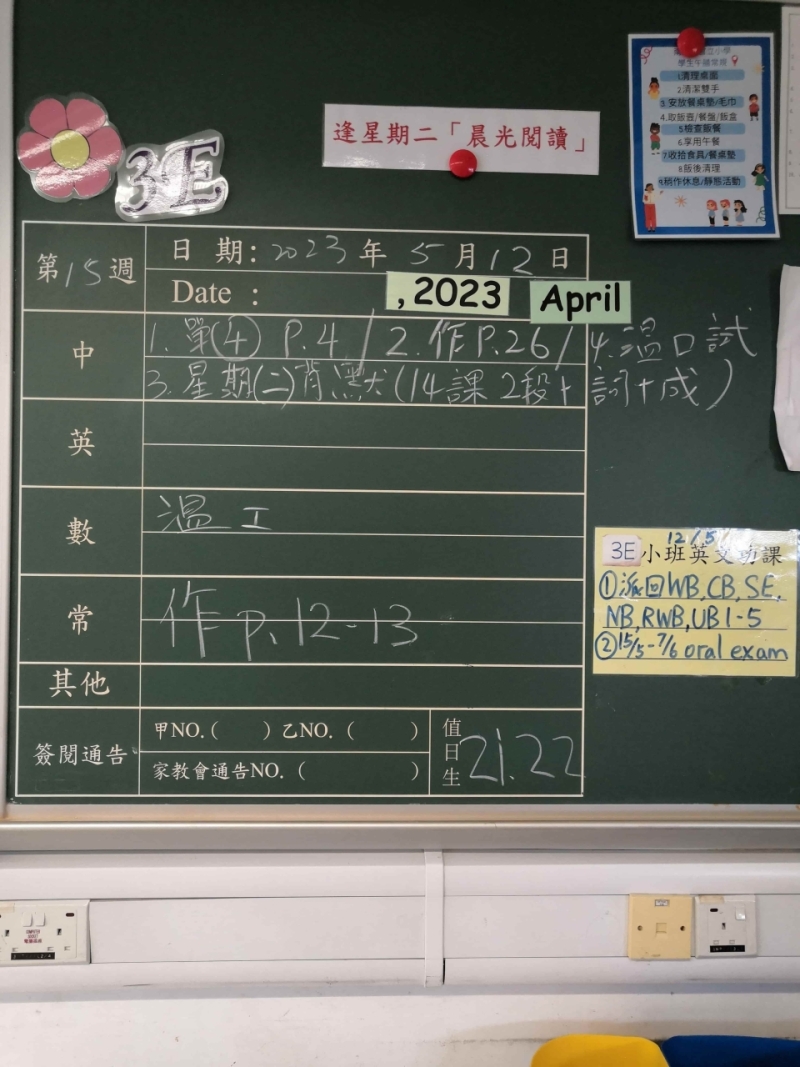 3-E
逢星期二「晨光閱讀」
立小學
學生午膳常規
1清理桌面
2清潔雙手
3.安放餐桌墊/毛巾
4.取飯壺/餐盤/飯盒
5檢查飯餐
6.享用午餐
7收拾食具/餐桌墊
8飯後清理
9稍作休息/靜態活動
第15週
日期:2023年5月12日
Date : , 2023 April
中
1.單(4) P.4 / 2.作P.26 / 4.溫口試
3.星期(二)背默(14課2段+詞+成)
英
數
溫工
常
作p.12-13
其他
簽閱通告
甲NO.( ) 乙NO.( )
家教會通告NO.( )
值日生
21.22
12/5
3E小班英文功課
①派回WB,CB,SE,
NB,RWB,UB1-5
②15/5-7/6 oral exam